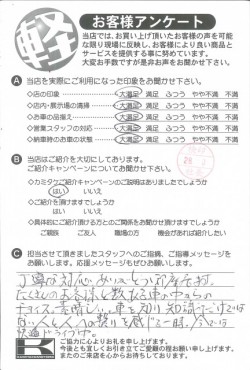 軽
お客様アンケート
当店では、お買い上げ頂いたお客様の声を可能
な限り現場に反映し、お客様により良い商品と
サービスを提供する事に努めています。
大変お手数ですが是非お声をお聞かせ下さい。
A 当店を実際にご利用になった印象をお聞かせ下さい。
◇店の印象 ◇大満足 満足 ふつう やや不満 不満
◇店内・展示場の清掃 ◇大満足 満足 ふつう やや不満 不満
◇お車の品揃え ◇大満足 満足 ふつう やや不満 不満
◇営業スタッフの対応 ◇大満足 満足 ふつう やや不満 不満
B 当店はご紹介を大切にしております。
ご紹介キャンペーンについてお聞かせ下さい。
◇カミタケご紹介キャンペーンのご説明はありましたでしょうか
はい いいえ
◇ご紹介を頂けますでしょうか
はい いいえ
◇具体的にご紹介頂ける方とのご関係をお聞かせ頂けますでしょうか
ご親族 ご友人 職場の方 機会があれば紹介したい
C 担当させて頂きましたスタッフへのご指摘、ご指導メッセージを
お願いします。応援メッセージもぜひお願いします。
丁寧な対応
たくさんのお客様と数ある車の中からの
チョイス、素晴しい。車を知り
人と人への繋りを感じる一時。
快適ドライブ中。
K
ご協力に心よりお礼を申し上げます。
今後とも宜しくお引き立てご愛顧の程お願い申し上げます。
またのご来店を心からお待ちしております。